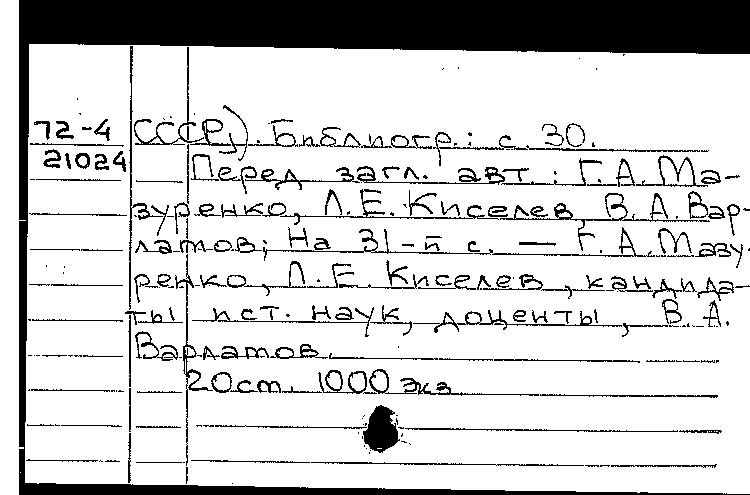 72-4 СССР). Библиогр.: с. 30.
21024 Перед загл. авт.: Г. А. Ма-
зуренко, Л. Е. Киселев, В. А. Вар-
латов; На 31-й с. — Г. А. Мазу-
ренко, Л. Е. Киселев, кандида-
ты ист. наук, доценты, В. А.
Варлатов.
20 см. 1000 экз